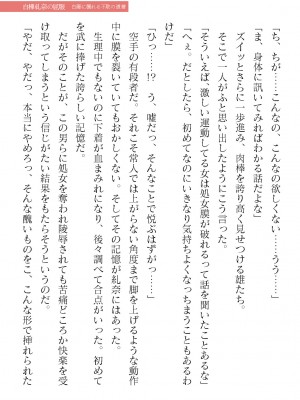 白樺糺奈の屈服
「ち、ちが……こんなの、こんなの欲しくない……うう……」
「ま、身体に訊いてみればわかる話だよな」
ズイッとさらに一歩進み、肉棒を誇り高く見せつける雄たち。
そこで一人がふと思い出したようにこう言った。
「そういえば、激しい運動してる女は処女膜が破れるって話を聞いたことあるな」
「へぇ。だとしたら、初めてなのにいきなり気持ちよくなっちまうこともあるわけだ」
「ひっ……!?　う、嘘だっ、そんなことで悦ぶはずがっ……」
空手の有段者だ。それこそ常人では上がらない角度まで脚を上げるような動作中に膜を裂いていてもおかしくない。そしてその記憶が糺奈にはあった。
生理中でもないのに下着が血まみれになり、後々調べて合点がいった。初めてを武に捧げた誇らしい記憶だ。
だがそのことが、この男らに処女を奪われ陵辱されても苦痛どころか快楽を受け取ってしまうという信じがたい結果をもたらそうというのだ。
「やだ、やだっ、本当にやめろっ、そんな醜いものをこ、こんな形で挿れられた